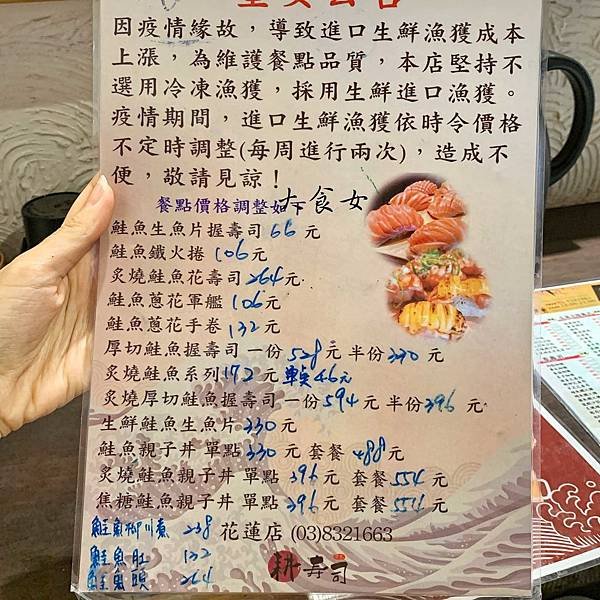 因疫情緣故，導致進口生鮮漁獲成本
上漲，為維護餐點品質，本店堅持不
選用冷凍漁獲，採用生鮮進口漁獲。
疫情期間，進口生鮮漁獲依時令價格
不定時調整(每周進行兩次)，造成不
便，敬請見諒！
餐點價格調整如下
大食女
鮭魚生魚片握壽司 66 元
鮭魚鐵火捲 106 元
炙燒鮭魚花壽司 264 元
鮭魚蔥花軍艦 106 元
鮭魚蔥花手卷 132 元
厚切鮭魚握壽司 一份 528 元 半份 330 元
炙燒鮭魚系列 172 元 單 46元
炙燒厚切鮭魚握壽司 一份 594 元 半份 396 元
生鮮鮭魚生魚片 330 元
鮭魚親子丼 單點 330 元 套餐 488 元
炙燒鮭魚親子丼 單點 396 元 套餐 554 元
焦糖鮭魚親子丼 單點 396 元 套餐 554 元
鮭魚柳川煮 238 花蓮店 (03)8321663
鮭魚肚 132
鮭魚頭 264
耕壽司